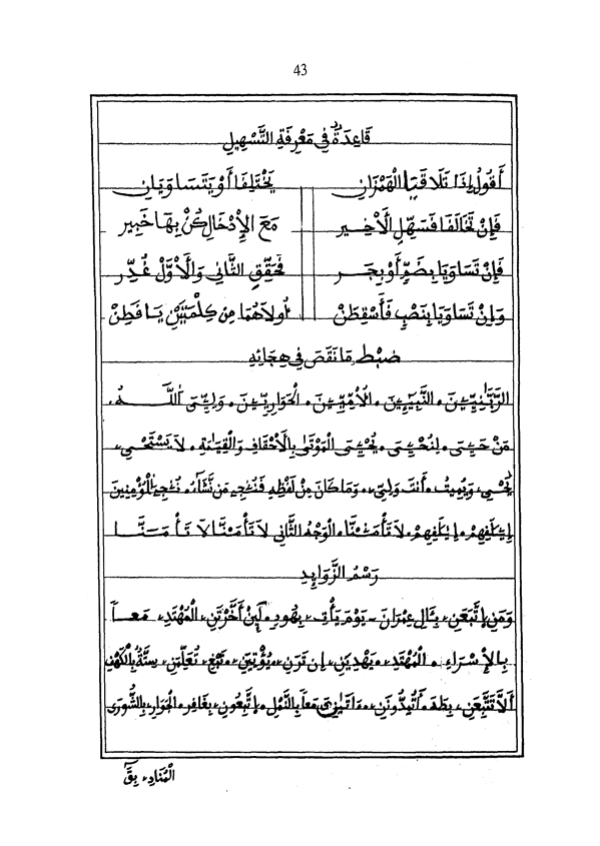 43
قَاعِدَةٌ فِي مَعْرِفَةِ التَّسْهِيلِ
أَقُولُ إِذَا تَلَاقَيَا الْهَمْزَانِ يَخْتَلِفَا أَوْ يَتَسَاوَيَانِ
فَإِنْ تَخَالَفَا فَسَهِّلِ الْأَخِير مَعَ الْإِدْخَالِ كُنْ بِهَا خَبِير
فَإِنْ تَسَاوَيَا بِضَمٍّ أَوْ بِجَر فَحَقِّقِ الثَّانِي وَالْأَوَّلَ
وَإِنْ تَسَاوَيَا بِنَصْبٍ فَأَسْقِطَنْ أُولَاهُمَا مِنْ كِلْمَتَيْنِ يَا فَطِنْ
ضبط مَا نَقَصَ فِي هِجَائِهِ
الرَّبَّٰنِيِّينَ. النَّبِيِّينَ. الْأُمِّيِّينَ. الْحَوَارِيِّينَ. وَلِيِّيَ اللَّهُ.
مَنْ حَيِيَ. لِنُحْيِيَ. يُحْيِيَ الْمَوْتَىٰ بِالْأَحْقَافِ وَالْقِيَامَةِ. لَا يَسْتَحْيِي.
يُحْيِي وَيُمِيتُ. أَنتَ وَلِيِّي. وَمَا كَانَ مِنْ لَفْظِهِ فَنُنجِي مَن نَّشَآءُ. نُنجِي الْمُؤْمِنِينَ
إِۦلَٰفِهِمْ. لَا تَأْمَ۬نَّا. الْوَجْهُ الثَّانِي لَا تَأْمَنُنَا لَا تَأْمَنَّا
رَسْمُ الزَّوَايِدِ
وَمَنِ اتَّبَعَنِ. بِآلِ عِمْرَانَ. يَوْمَ يَأْتِ. بِهُودٍ. لَئِنْ أَخَّرْتَنِ. الْمُهْتَدِ. مَعاً
بِالْإِسْرَاءِ. الْمُهْتَدِ. يَهْدِيَنِ. إِن تَرَنِ. يُؤْتِيَنِ. نَبْغِ. تُعَلِّمَنِ. سِتَّةٌ بِالْكَهْفِ
أَلَّا تَتَّبِعَنِ. بِطَهَ. أَتُمِدُّونَنِ. ءَاتَىٰنِۦَ مَعاً بِالنَّمْلِ. اتَّبِعُونِ. بِغَافِرٍ. الْجَوَارِ. بِالشُّورَى
الْمُنَادِ. بِقَ